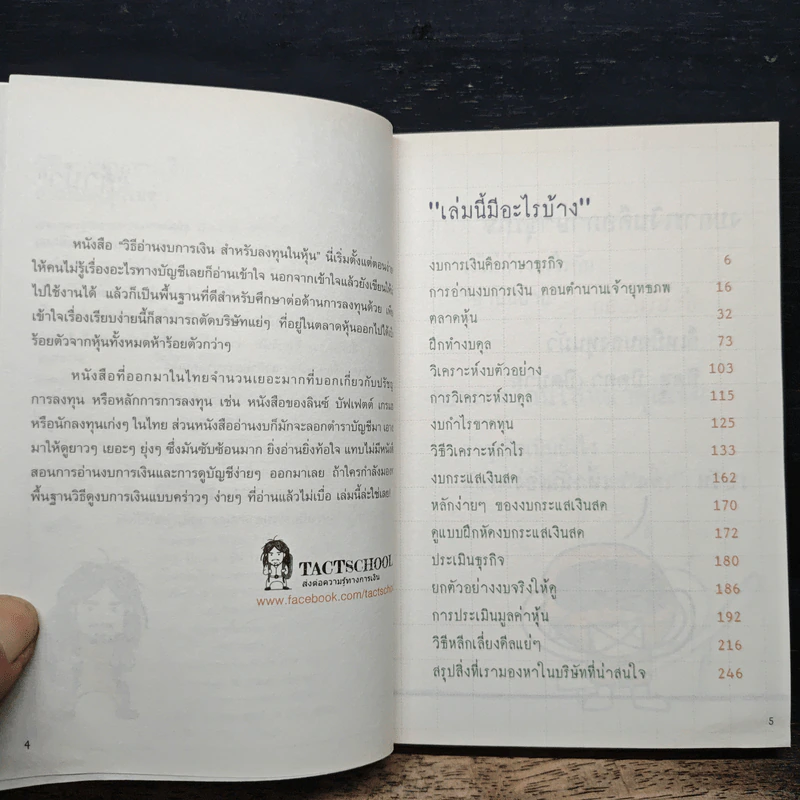 หนังสือ "วิธีอ่านงบการเงิน สำหรับลงทุนในหุ้น" นี่เริ่มตั้งแต่ตอน
ให้คนไม่รู้เรื่องอะไรทางบัญชีเลยก็อ่านเข้าใจ นอกจากเข้าใจแล้วยังเขียน
ไปใช้งานได้ แล้วก็เป็นพื้นฐานที่ดีสำหรับศึกษาต่อด้านการลงทุนด้วย
เข้าใจเรื่องเรียบง่ายนี้ก็สามารถตัดบริษัทแย่ๆ ที่อยู่ในตลาดหุ้นออกไปได้
ร้อยตัวจากหุ้นทั้งหมดห้าร้อยตัวกว่าๆ
หนังสือที่ออกมาในไทยจำนวนเยอะมากที่บอกเกี่ยวกับ
การลงทุน หรือหลักการการลงทุน เช่น หนังสือของลินซ์ บัฟเฟตต์
หรือนักลงทุนเก่งๆ ในไทย ส่วนหนังสืออ่านงบก็มักจะลอกตำราบัญชีมา
มาให้ดูยาวๆ เยอะๆ ยุ่งๆ ซึ่งมันซับซ้อนมาก ยิ่งอ่านยิ่งท้อใจ แทบไม่มี
สอนการอ่านงบการเงินและการดูบัญชีง่ายๆ ออกมาเลย ถ้าใครกำลัง
พื้นฐานวิธีดูงบการเงินแบบคร่าวๆ ง่ายๆ ที่อ่านแล้วไม่เบื่อ เล่มนี้ล่ะใช่เลย!
TACTSCHOOL
ส่งต่อความรู้ทางการเงิน
www.facebook.com/tactschool
4
"เล่มนี้มีอะไรบ้าง"
งบการเงินคือภาษาธุรกิจ 6
การอ่านงบการเงิน ตอนตำนานเจ้ายุทธภพ 16
ตลาดหุ้น 32
ฝึกทำงบดุล 73
วิเคราะห์งบตัวอย่าง 103
การวิเคราะห์งบดุล 115
งบกำไรขาดทุน 125
วิธีวิเคราะห์กำไร 133
งบกระแสเงินสด 162
หลักง่ายๆ ของงบกระแสเงินสด 170
ดูแบบฝึกหัดงบกระแสเงินสด 172
ประเมินธุรกิจ 180
ยกตัวอย่างงบจริงให้ดู 186
การประเมินมูลค่าหุ้น 192
วิธีหลีกเลี่ยงดีลแย่ๆ 216
สรุปสิ่งที่เรามองหาในบริษัทที่น่าสนใจ 246
5